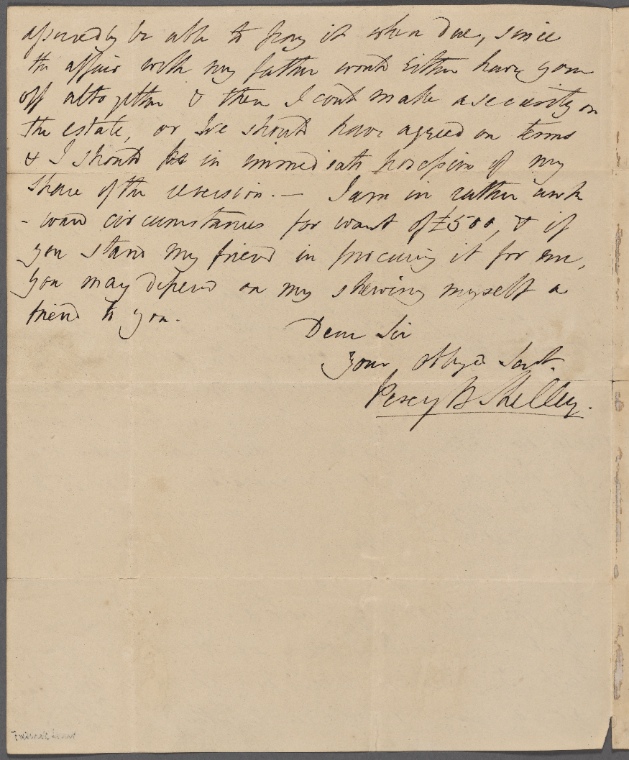 assuredly be able to pay it when due, since
the affair with my father would either have gone
off altogether & then I could make a security on
the estate, or we should have agreed on terms
& I should be in immediate possession of my
share of the reversion — I am in rather awk
-ward circumstances for want of £500, & if
you stand my friend in procuring it for me,
you may depend on my shewing myself a
friend to you.
Dear Sir
Your obliged Servt.
Percy B Shelley.